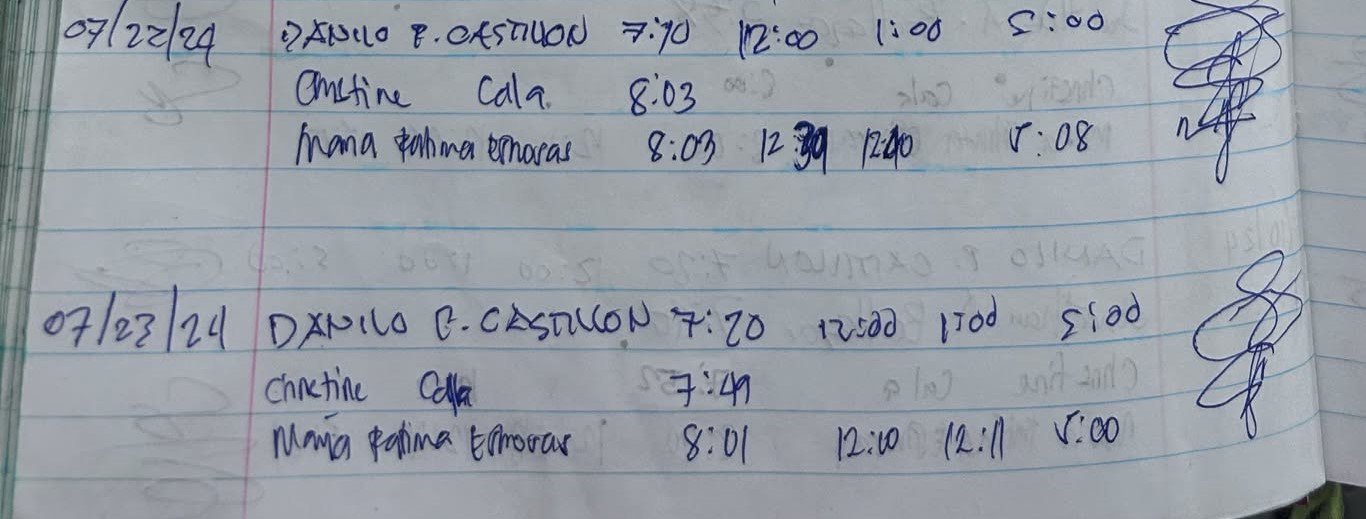 07/22/24 DANILO E. CASTILLON 7:10 12:00 1:00 5:00
Christine Cala 8:03
Maria Fatima 8:03 12:39 12:40 5:08
07/23/24 DANILO E. CASTILLON 7:20 12:00 1:00 5:00
Christine Cala 7:49
Maria Fatima 8:01 12:10 12:11 5:00